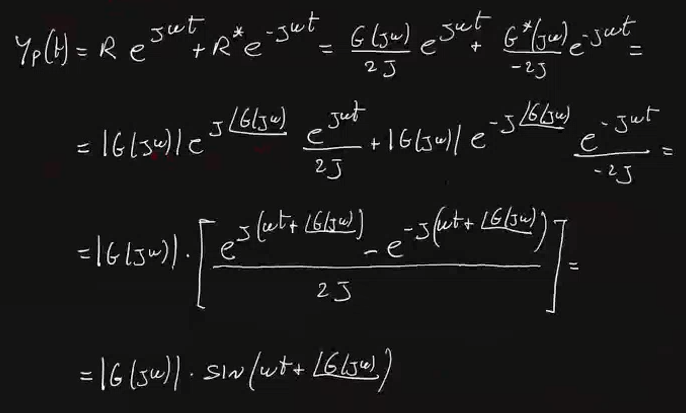 y_P(t) = R e^{jωt} + R* e^{-jωt} = G(jω)/2j e^{jωt} + G*(jω)/-2j e^{-jωt} =
= |G(jω)| e^{j∠G(jω)} e^{jωt}/2j + |G(jω)| e^{-j∠G(jω)} e^{-jωt}/-2j =
= |G(jω)| · [ e^{j(ωt + ∠G(jω))} - e^{-j(ωt + ∠G(jω))} / 2j ] =
= |G(jω)| · sin(ωt + ∠G(jω))